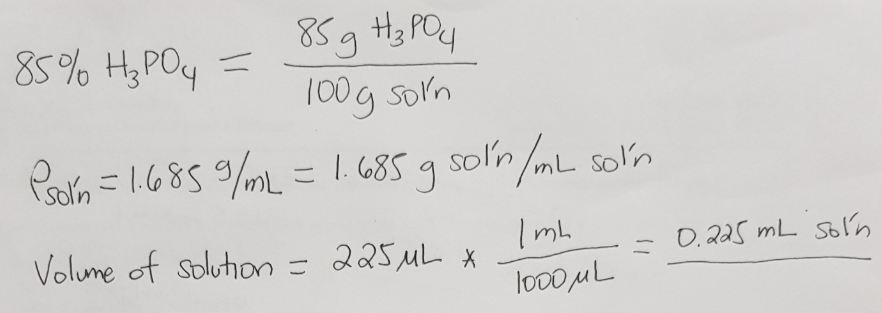 85% H₃PO₄ = 85 g H₃PO₄ / 100 g sol'n
ρsol'n = 1.685 g/mL = 1.685 g sol'n/mL sol'n
Volume of solution = 225 μL * 1 mL / 1000 μL = 0.225 mL sol'n